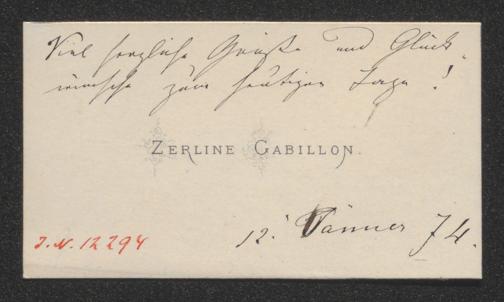 Viel herzliche Grüße und Glück-
wünsche zum heutigen Tage!
ZERLINE GABILLON.
12. Jänner 74.
I.N. 12294